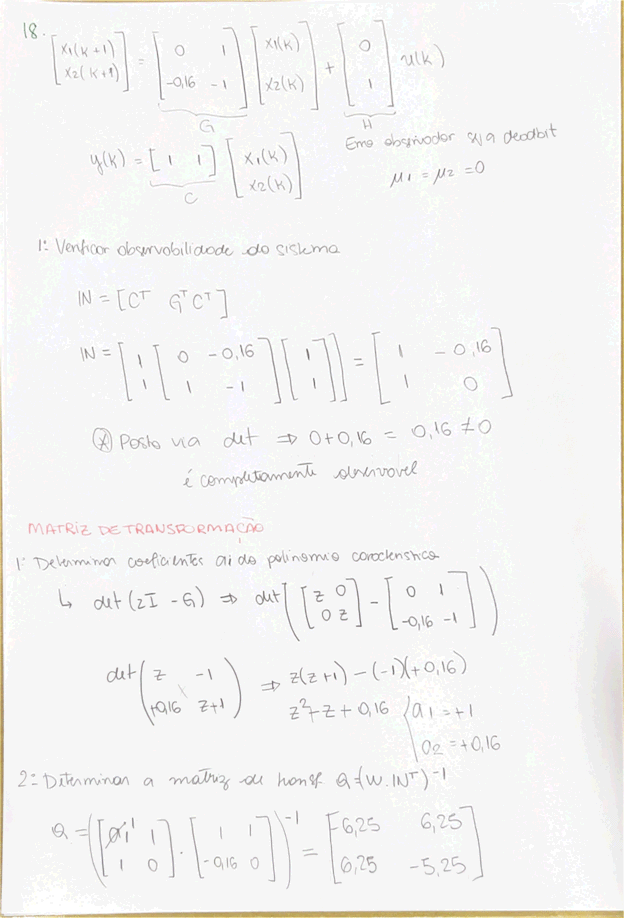 18. [x1(k+1) ; x2(k+1)] = [0 1 ; -0,16 -1] [x1(k) ; x2(k)] + [0 ; 1] u(k)
G H
y(k) = [1 1] [x1(k) ; x2(k)]
C
Erro observador seja deadbit
μ1 = μ2 = 0
1: Verificar observabilidade do sistema
IN = [Cᵀ GᵀCᵀ]
IN = [1 ; 1 [0 -0,16 ; 1 -1] [1 ; 1]] = [1 -0,16 ; 1 0]
* Posto via det ⇒ 0+0,16 = 0,16 ≠ 0
é completamente observavel
MATRIZ DE TRANSFORMAÇÃO
1: Determinar coeficientes ai do polinomio caracteristico
↳ det(zI - G) ⇒ det([z 0 ; 0 z] - [0 1 ; -0,16 -1])
det(z -1 ; +0,16 z+1) ⇒ z(z+1) - (-1)(+0,16)
z²+z+0,16 { a1 = +1
a2 = +0,16
2: Determinar a matriz de transf Q=(W.INᵀ)⁻¹
Q = ([1 1 ; 1 0] . [1 1 ; -0,16 0])⁻¹ = [-6,25 6,25 ; 6,25 -5,25]